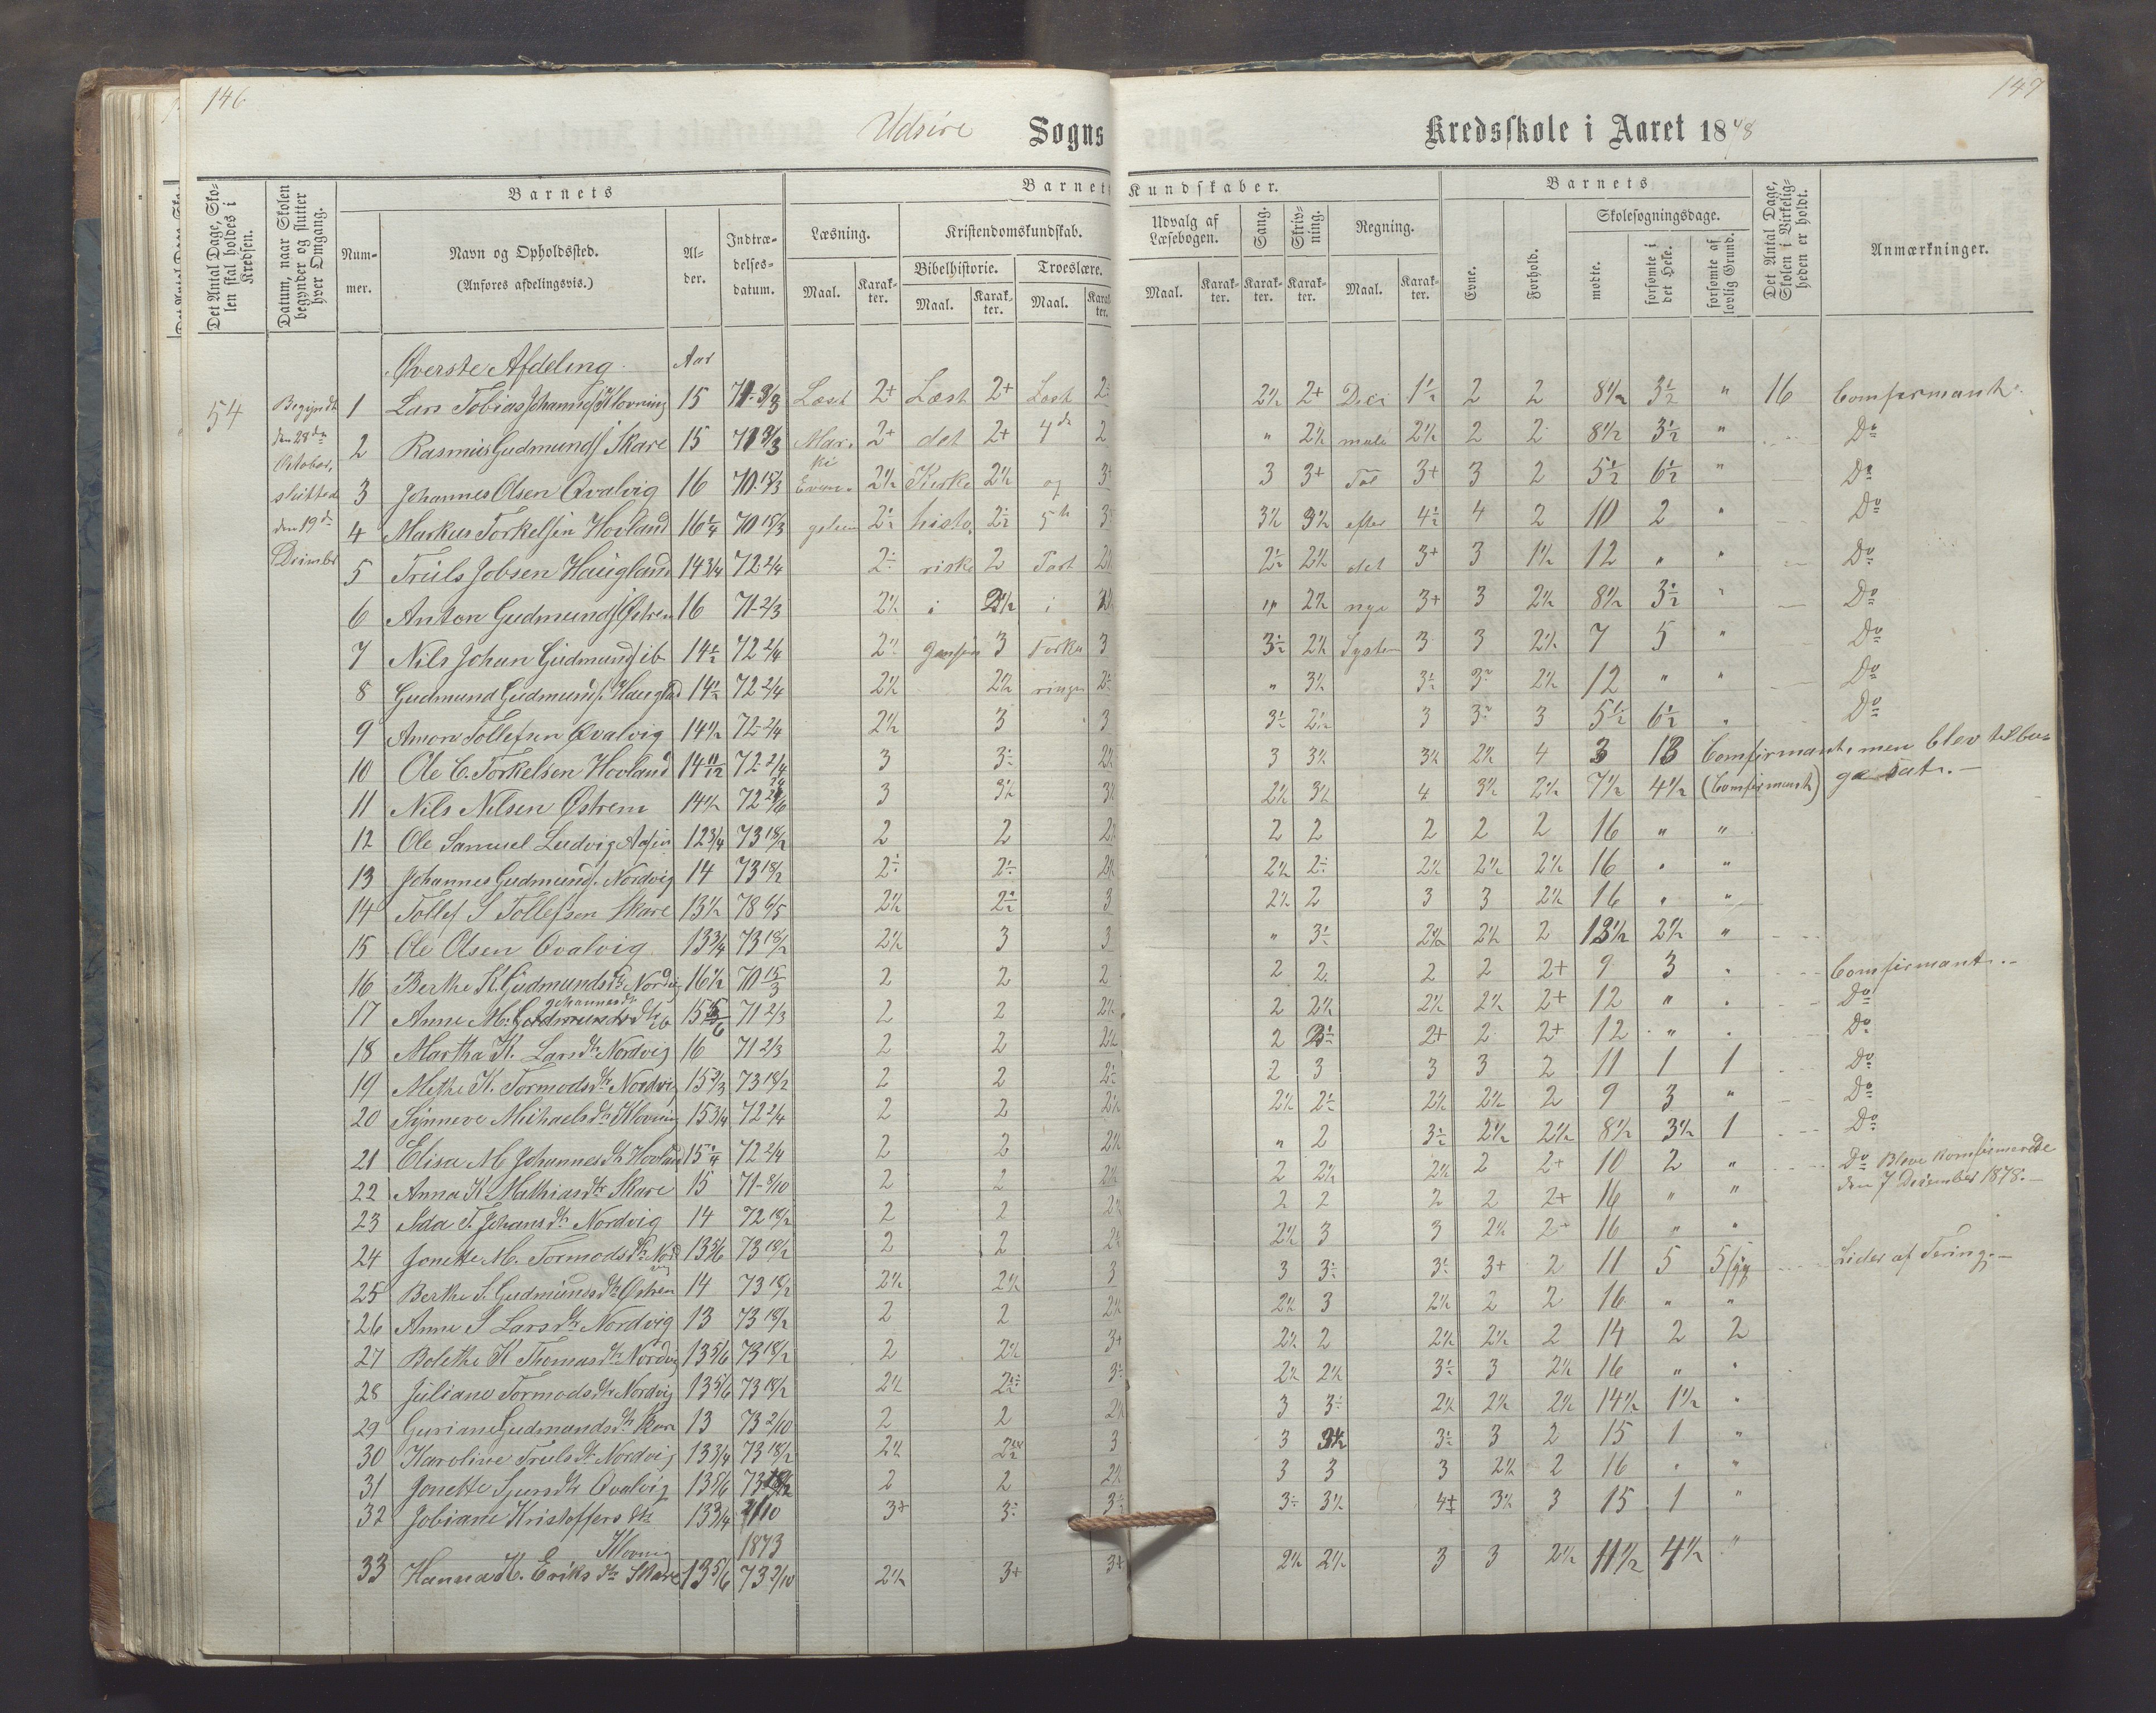 146
147
Udsire Sogns Kredsskole i Aaret 1878
Det Antal Dage, Skolen skal holdes i Kredsen.
Datum, naar Skolen begynder og slutter hver Omgang.
Barnets
Nummer.
Navn og Opholdssted.
(Anføres afdelingsvis.)
Alder.
Indtrædelsesdatum.
Barnets Kundskaber.
Læsning.
Maal. Karakter.
Kristendomskundskab.
Bibelhistorie.
Maal. Karakter.
Troeslære.
Maal. Karakter.
Udvalg af Læsebogen.
Maal. Karakter.
Sang.
Karakter.
Skrivning.
Karakter.
Regning.
Maal. Karakter.
Barnets
Evne.
Forhold.
Skolesøgningsdage.
mødte.
forsømte i det Hele.
forsømte af lovlig Grund.
Det Antal Dage, Skolen i Virkeligheden er holdt.
Anmærkninger.
Øverste Afdeling. Aar
54
Begyndt
den 28de
October,
sluttede
den 19de
1 Lars Tobias Johannes. Klovning 15 Læst 2+ Læst 2+ Læst 2+ Deci 2 2 8½ 3½ " 16 Comfirmant.
2 Rasmus Gudmunds. Skare 15 Mar- 2+ det 2+ 4de 2 " 2½ male 2½ 2 2 8½ 3½ " Do
ki
3 Johannes Olsen Qvalvig 16 70 18/3 Evan- 2½ Kirke 2½ og 3+ 3 3+ Tal 3+ 3 2 5½ 6½ " Do
4 Markus Torkelsen Hovland 16¼ 70 18/3 gelium histo- 5te 3½ 3½ efter 4½ 4 2 10 2 " Do
5 Truls Jobsen Haugland 14 3/4 72 2/4 riske 2 Part 2½ det 3+ 3 1½ 12 " " Do
6 Anton Gudmunds. Østrem 16 71 2/3 2½ i 2½ i " 2½ nye 3+ 3 2½ 8½ 3½ " Do
7 Nils Johan Gudmunds. ib 14½ 72 2/4 3 Forkla 3 3½ 2½ System 3 3 2½ 7 5 " Do
8 Gudmund Gudmunds. Haugld 14½ 72 2/4 2½ 2½ ringen " 3½ 2½ 12 " " Do
9 Amon Tollefsen Qvalvig 14½ 72 2/4 2½ 3 3 3½ 2½ 3 3 5½ 6½ " Do
10 Ole C. Torkelsen Hovland 14 11/12 72 2/4 3 2½ 3 3½ 3½ 2½ 4 3 13 Comfirmant, men blev tilba-
11 Nils Nilsen Østrem 14½ 3 3½ 3½ 2½ 3½ 4 3½ 2½ 7½ 4½ (Comfirmant) ge sat.
12 Ole Samuel Ludvig Aasen 12 3/4 73 18/2 2 2 2½ 2 2 2 2 2 16 " "
13 Johannes Gudmunds. Nordvig 14 73 18/2 2½ 2½ 2½ 2½ 16 " "
14 Tollef S Tollefsen Skare 13½ 2½ 3 2½ 2 3 3 2½ 16 " "
15 Ole Olsen Qvalvig 13 3/4 73 18/2 2½ 3 3 " 2½ 2½ 2 13½ 2½ "
16 Berthe K. Gudmundsdtr Nordvig 16½ 70 15/3 2 2 2 2 2 2 2 2+ 9 3 " Comfirmant.
17 Anne M. Johannesdtr ib 71 2/3 2 2 2½ 2 2½ 2½ 2½ 2+ 12 " " Do
18 Martha K. Larsdtr Nordvig 16 71 2/3 2 2 2½ 2 2+ 2 2+ 12 " " Do
19 Methe K. Tormodsdtr Nordvig 15 2/3 73 18/2 2 2 2 3 3 3 2 11 1 1 Do
20 Synneve Michaelsdtr Klovning 15 3/4 72 2/4 2 2 2½ 2½ 2½ 2½ 2 9 3 " Do
21 Elisa M Johannesdtr Hovland 15¼ 72 2/4 2 2 2½ " 2 2½ 2½ 8½ 3½ 1 Do
22 Anna K. Mathiasdtr Skare 15 71 2 2 2½ 2 2½ 2½ 2 2+ 10 2 " Do Blev Komfirmerede
den 7 December 1878.
23 Ada T. Johansdtr Nordvig 14 2 2 2½ 2 2 2 2 2+ 16 " "
24 Jonette M. Tormodsdtr Nord 13 5/6 73 18/2 2 2 2½ 2½ 3 3 2½ 2 16 " "
vig
25 Berthe S. Gudmundsdtr Østrem 14 73 18/2 2½ 2½ 3 3 3+ 2 11 5 5 Lider af Tering.
26 Anne S Larsdtr Nordvig 13 73 18/2 2 2 2½ 2½ 3 2½ 2 2 16 " "
27 Bolethe K Thomasdtr Nordvig 13 5/6 73 18/2 2 2½ 3+ 2½ 2 2½ 2½ 2 14 2 2
28 Juliane Tormodsdtr Nordvig 13 5/6 73 18/2 2½ 2½ 2½ 3 2½ 16 " "
29 Guriane Gudmundsdtr Skare 13 73 2/10 2 2 2½ 3 2½ 2½ 2½ 14½ 1½ "
30 Karoline Trulsdtr Nordvig 13 3/4 73 18/2 2½ 3 3 3 2 15 1 "
31 Jonette Sjursdtr Qvalvig 13 5/6 2 2 2½ 3 3 3 2½ 2 16 " "
32 Jobiane Kristoffersdtr 13 3/4 2/10 3+ 3½ 3½ 3 15 1 "
Klovning 1873
33 Hanna K. Eriksdtr Skare 13 5/6 73 2/10 2½ 3+ 3+ 2½ 2½ 3 3 2½ 11½ 4½ "